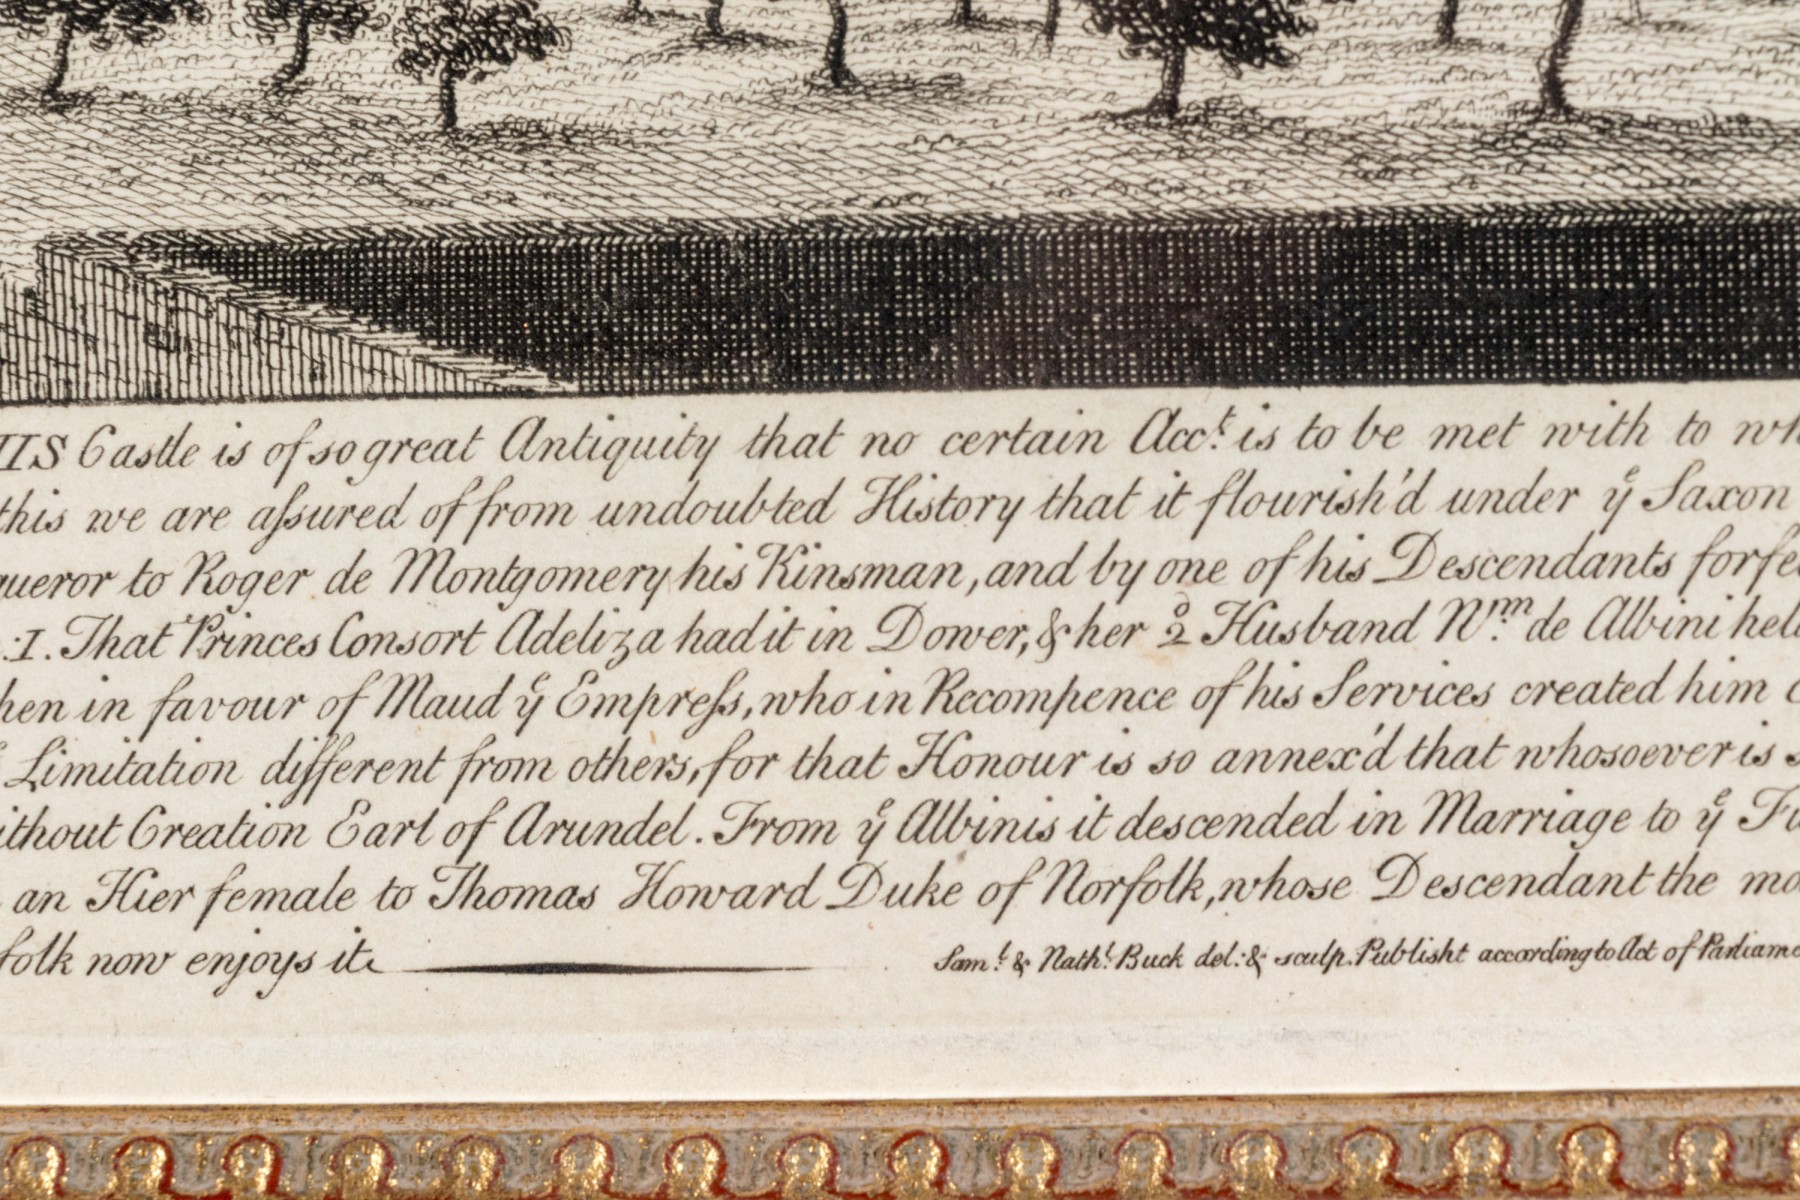 HIS Castle is of so great Antiquity that no certain Acc.^t is to be met with to wh
this we are aſsured of from undoubted History that it flourish'd under y^e Saxon
queror to Roger de Montgomery his Kinsman, and by one of his Descendants forfe
:I. That Princes Consort Adeliza had it in Dower, & her 2^d Husband W^m. de Albini hel
hen in favour of Maud y^e Empreſs, who in Recompence of his Services created him
Limitation different from others, for that Honour is so annex'd that whosoever is
ithout Creation Earl of Arundel. From y^e Albinis it descended in Marriage to y^e F
an Hier female to Thomas Howard Duke of Norfolk, whose Descendant the mo
folk now enjoys it.
Sam.^l & Nath.^l Buck del: & sculp. Publisht according to Act of Parliame